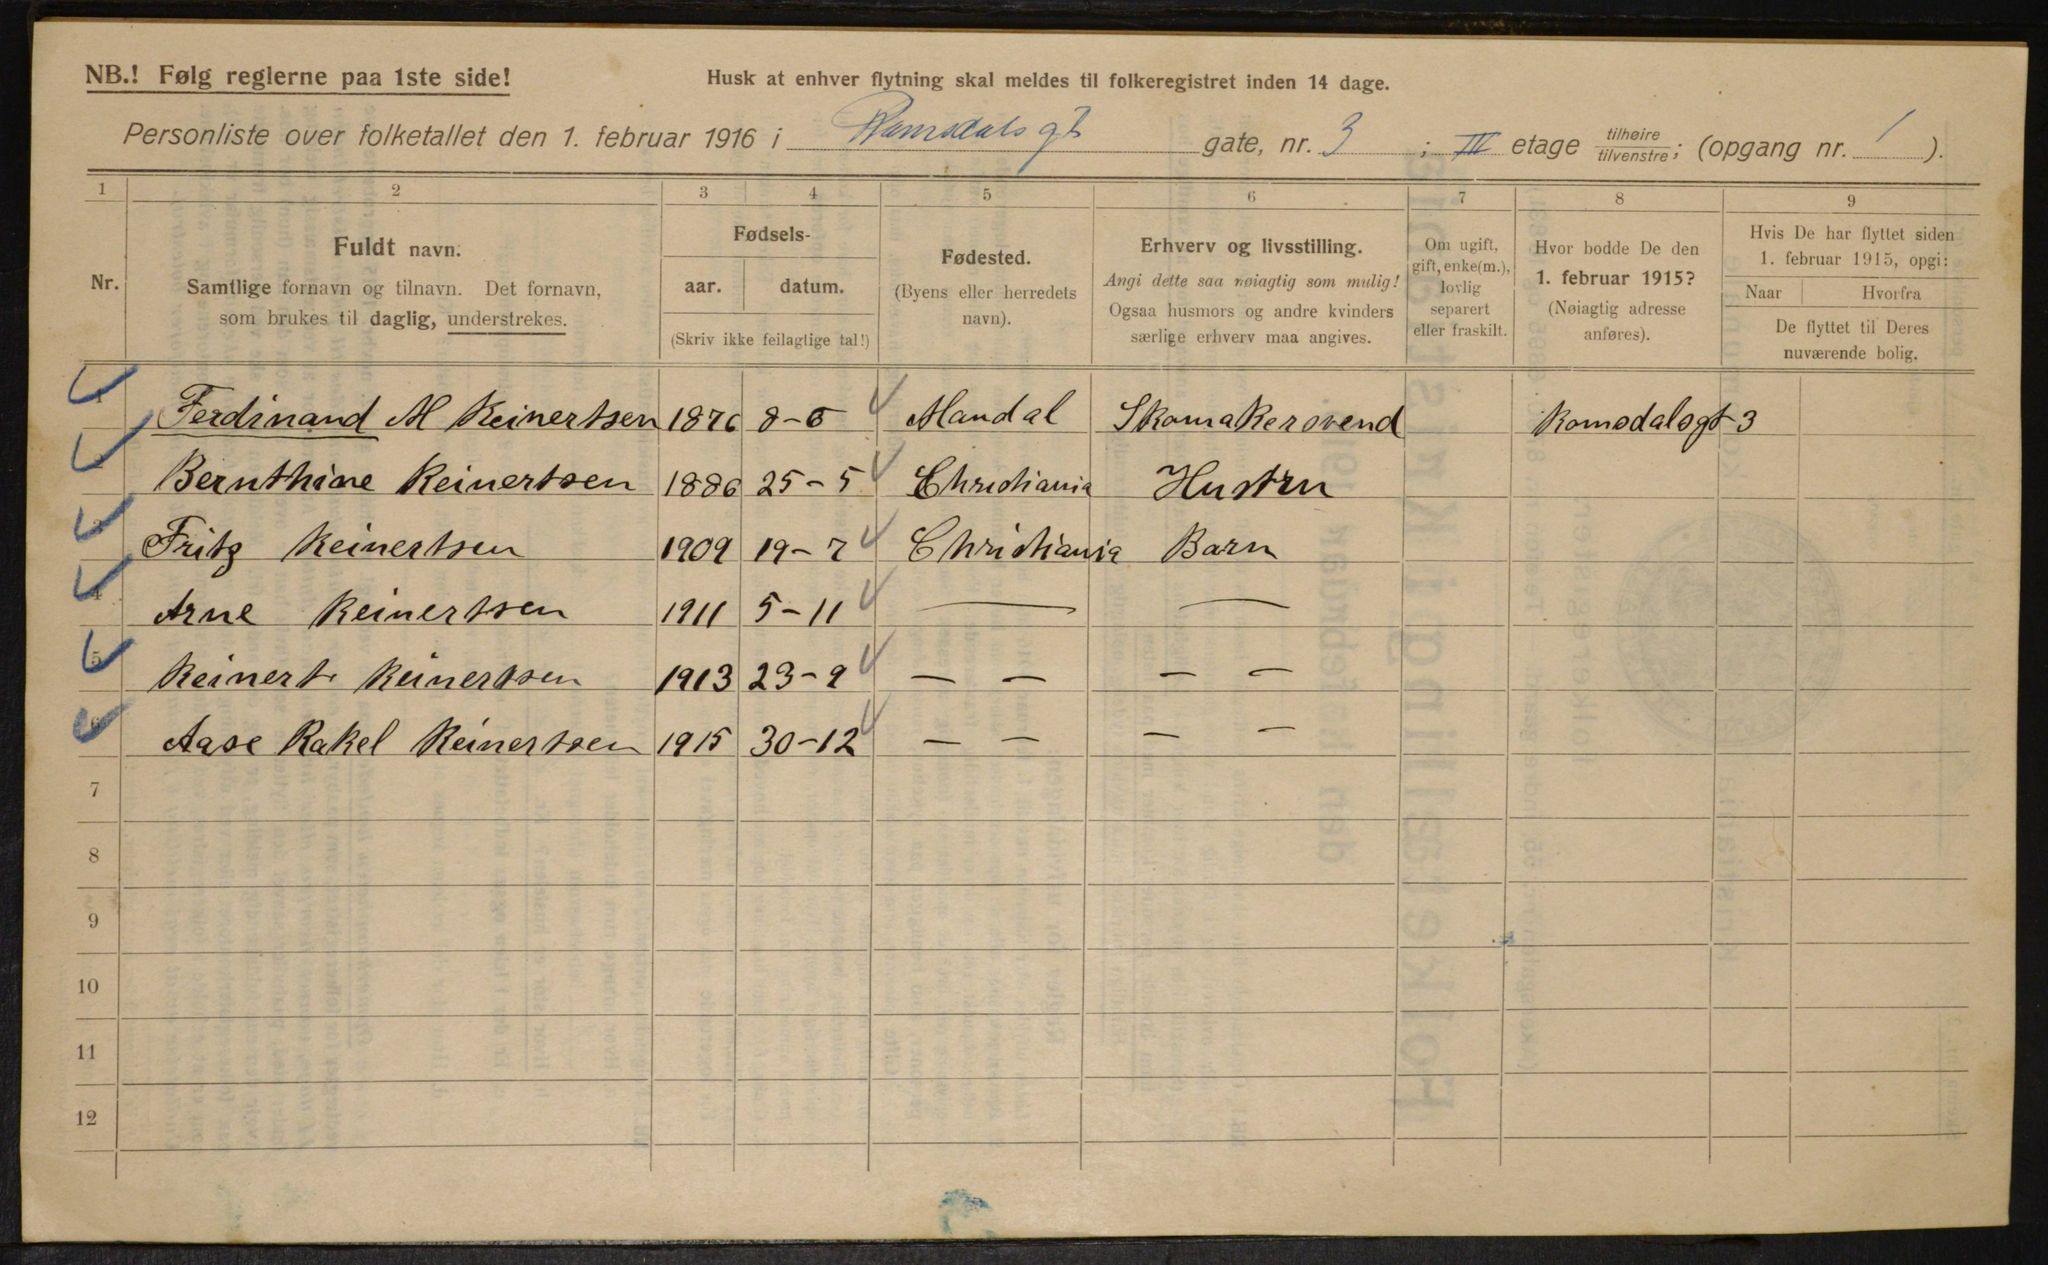 NB.! Følg reglerne paa 1ste side!
Husk at enhver flytning skal meldes til folkeregistret inden 14 dage.
Personliste over folketallet den 1. februar 1916 i Romsdalsgt gate, nr. 3 ; III etage tilhøire/tilvenstre; (opgang nr. 1 ).
1 2 3 4 5 6 7 8 9
Nr.
Fuldt navn.
Samtlige fornavn og tilnavn. Det fornavn,
som brukes til daglig, understrekes.
Fødsels-
aar. datum.
(Skriv ikke feilagtige tal!)
Fødested.
(Byens eller herredets
navn).
Erhverv og livsstilling.
Angi dette saa nøiagtig som mulig!
Ogsaa husmors og andre kvinders
særlige erhverv maa angives.
Om ugift,
gift, enke(m.),
lovlig
separert
eller fraskilt.
Hvor bodde De den
1. februar 1915?
(Nøiagtig adresse
anføres).
Hvis De har flyttet siden
1. februar 1915, opgi:
Naar Hvorfra
De flyttet til Deres
nuværende bolig.
1 Ferdinand M Reinertsen 1876 8-6 Mandal Skomakersvend Romsdalsgt 3
2 Bernthine Reinertsen 1886 25-5 Christiania Hustru
3 Fritz Reinertsen 1909 19-7 Christiania Barn
4 Arne Reinertsen 1911 5-11 — —
5 Reinert Reinertsen 1913 23-9 — — — —
6 Aase Rakel Reinertsen 1915 30-12 — — — —
7
8
9
10
11
12